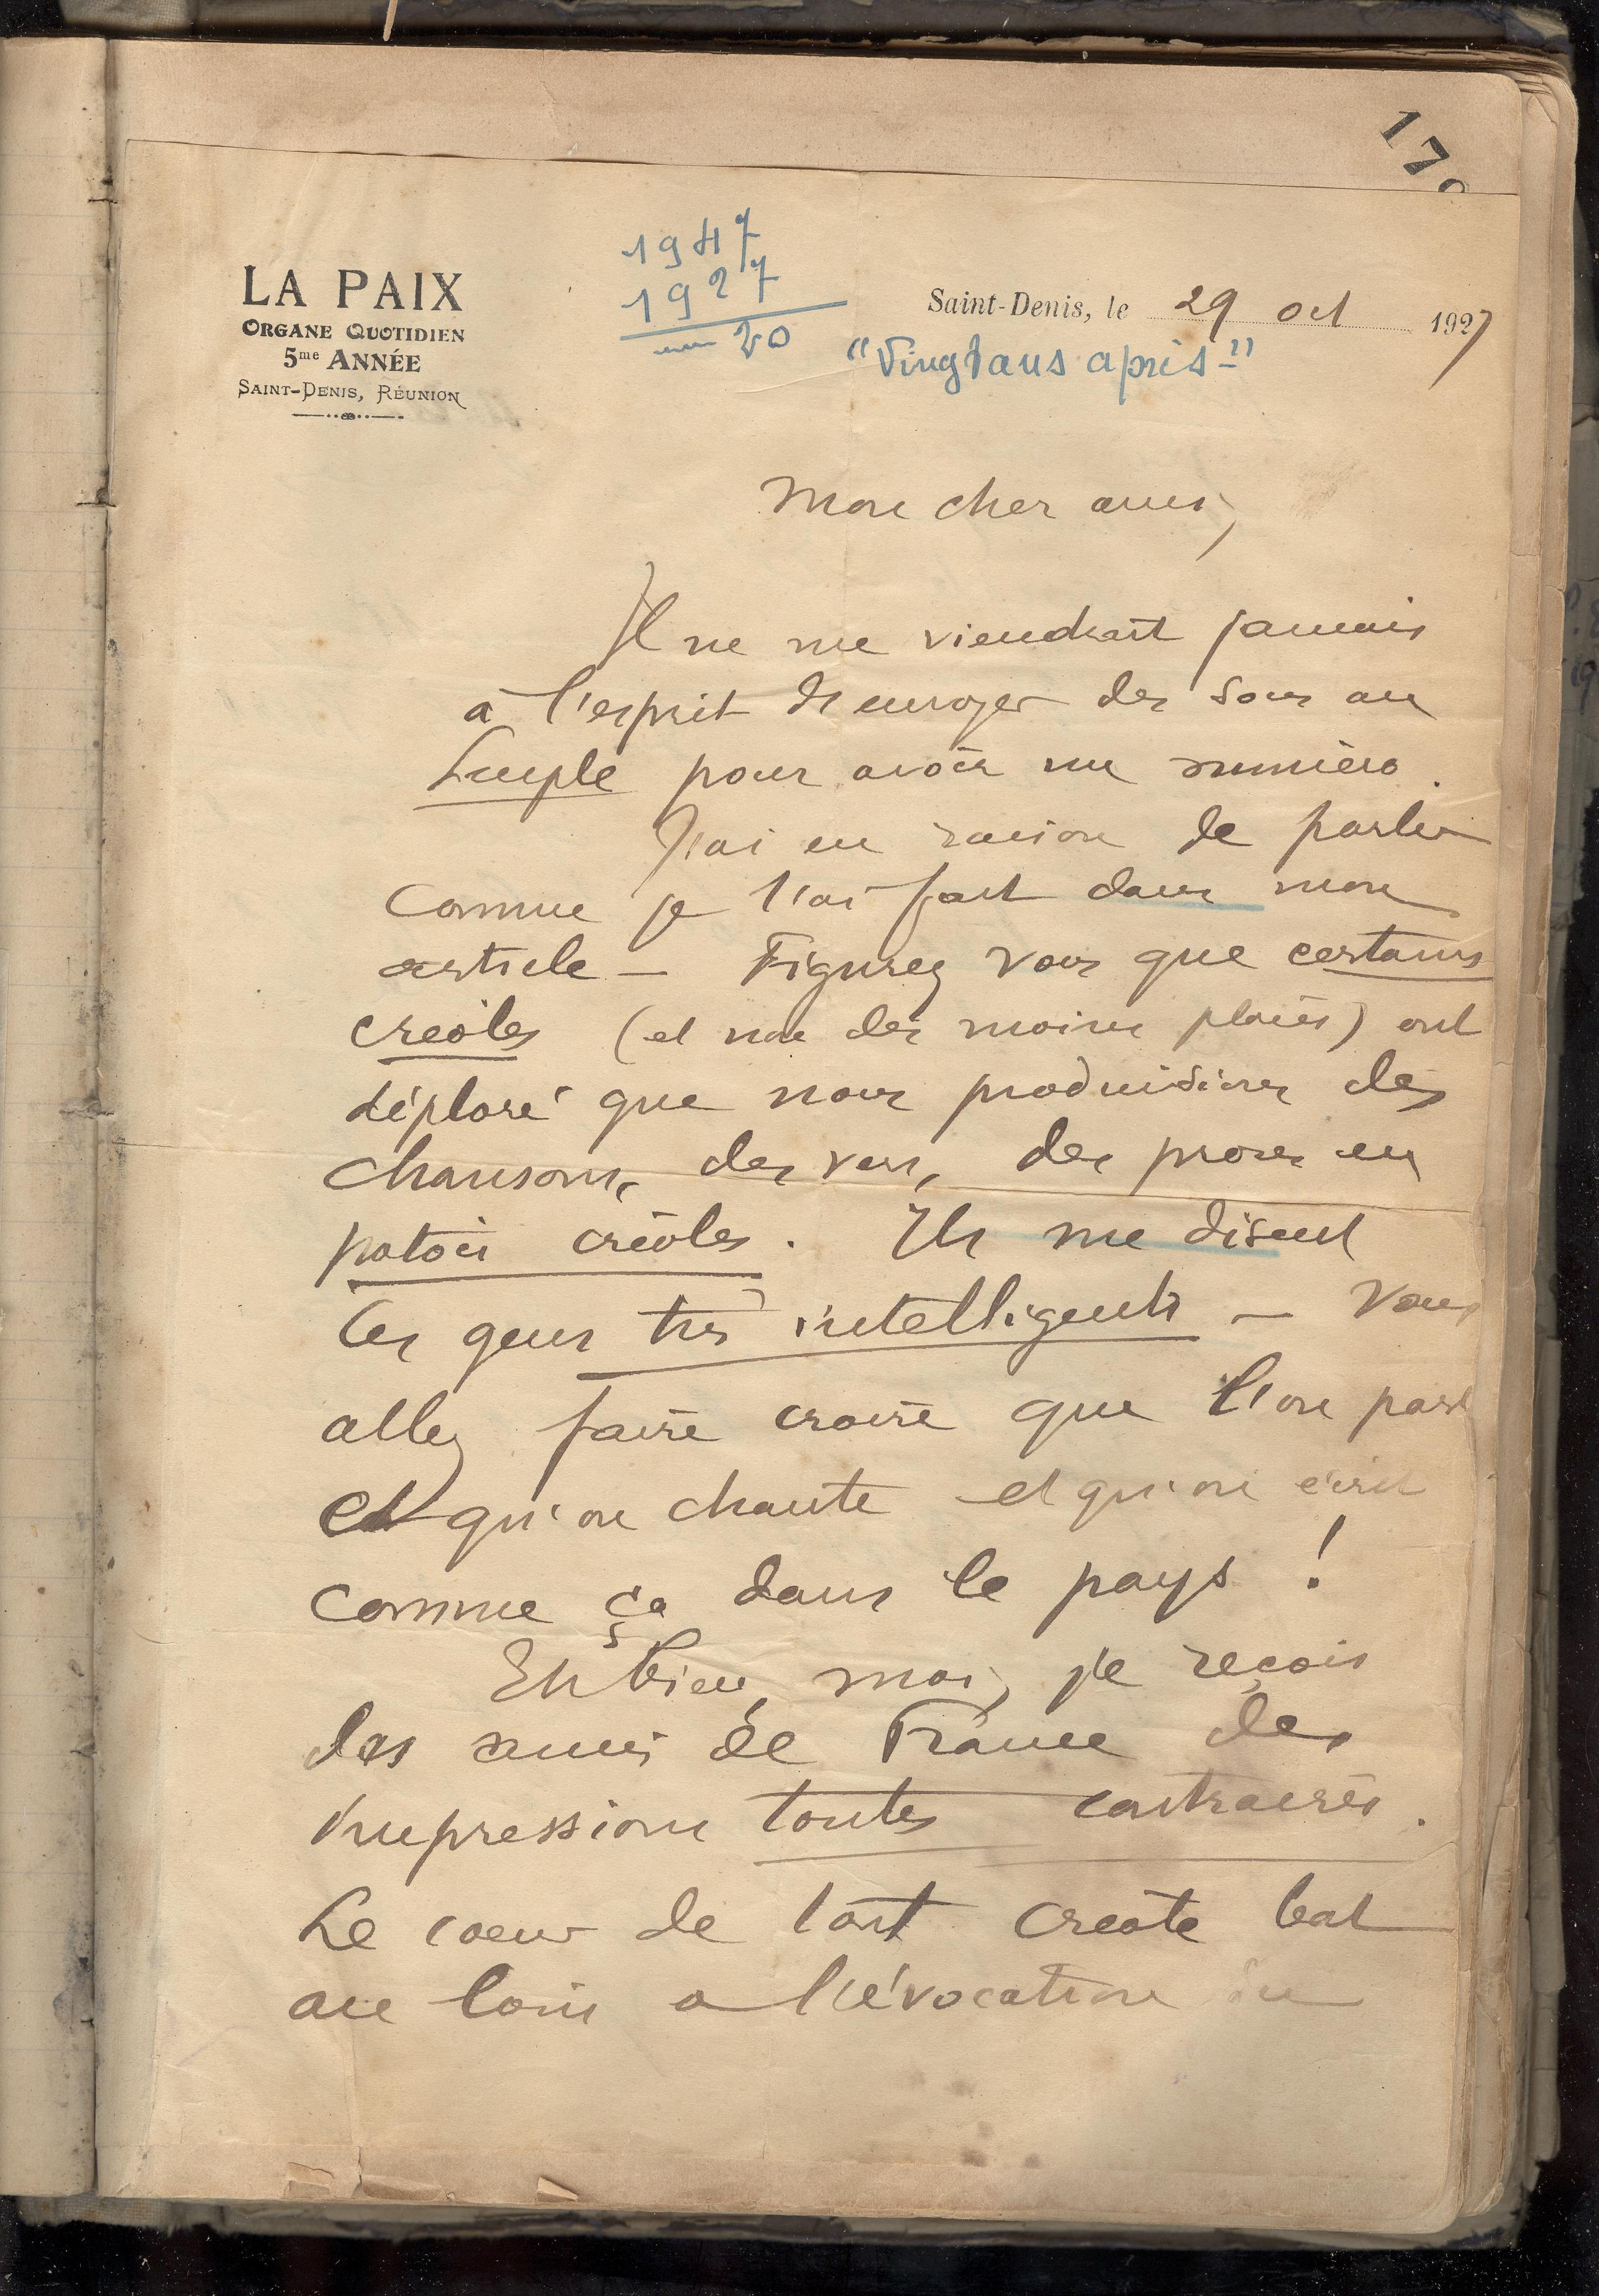 170
LA PAIX
ORGANE QUOTIDIEN
5me ANNÉE
SAINT-DENIS, RÉUNION
1947
1927
20
Saint-Denis, le 29 Oct 1927
"Vingt ans après"
Mon cher ami,
Il ne me viendrait jamais
à l'esprit d'envoyer des sous au
Peuple pour avoir un numéro.
J'ai eu raison de parler
comme je l'ai fait dans mon
article — Figurez vous que certains
créoles (et non des moins placés) ont
déploré que nous produisions des
chansons, des vers, des proses en
patois créoles. Ils me disent
ces gens très intelligents — Vous
allez faire croire que l'on parl
et qu'on chante et qu'on écrit
comme ça dans le pays !
Eh bien, moi, je reçois
des amis de France des
impressions toutes contraires.
Le coeur de tout créole bat
au loin a l'évocation du